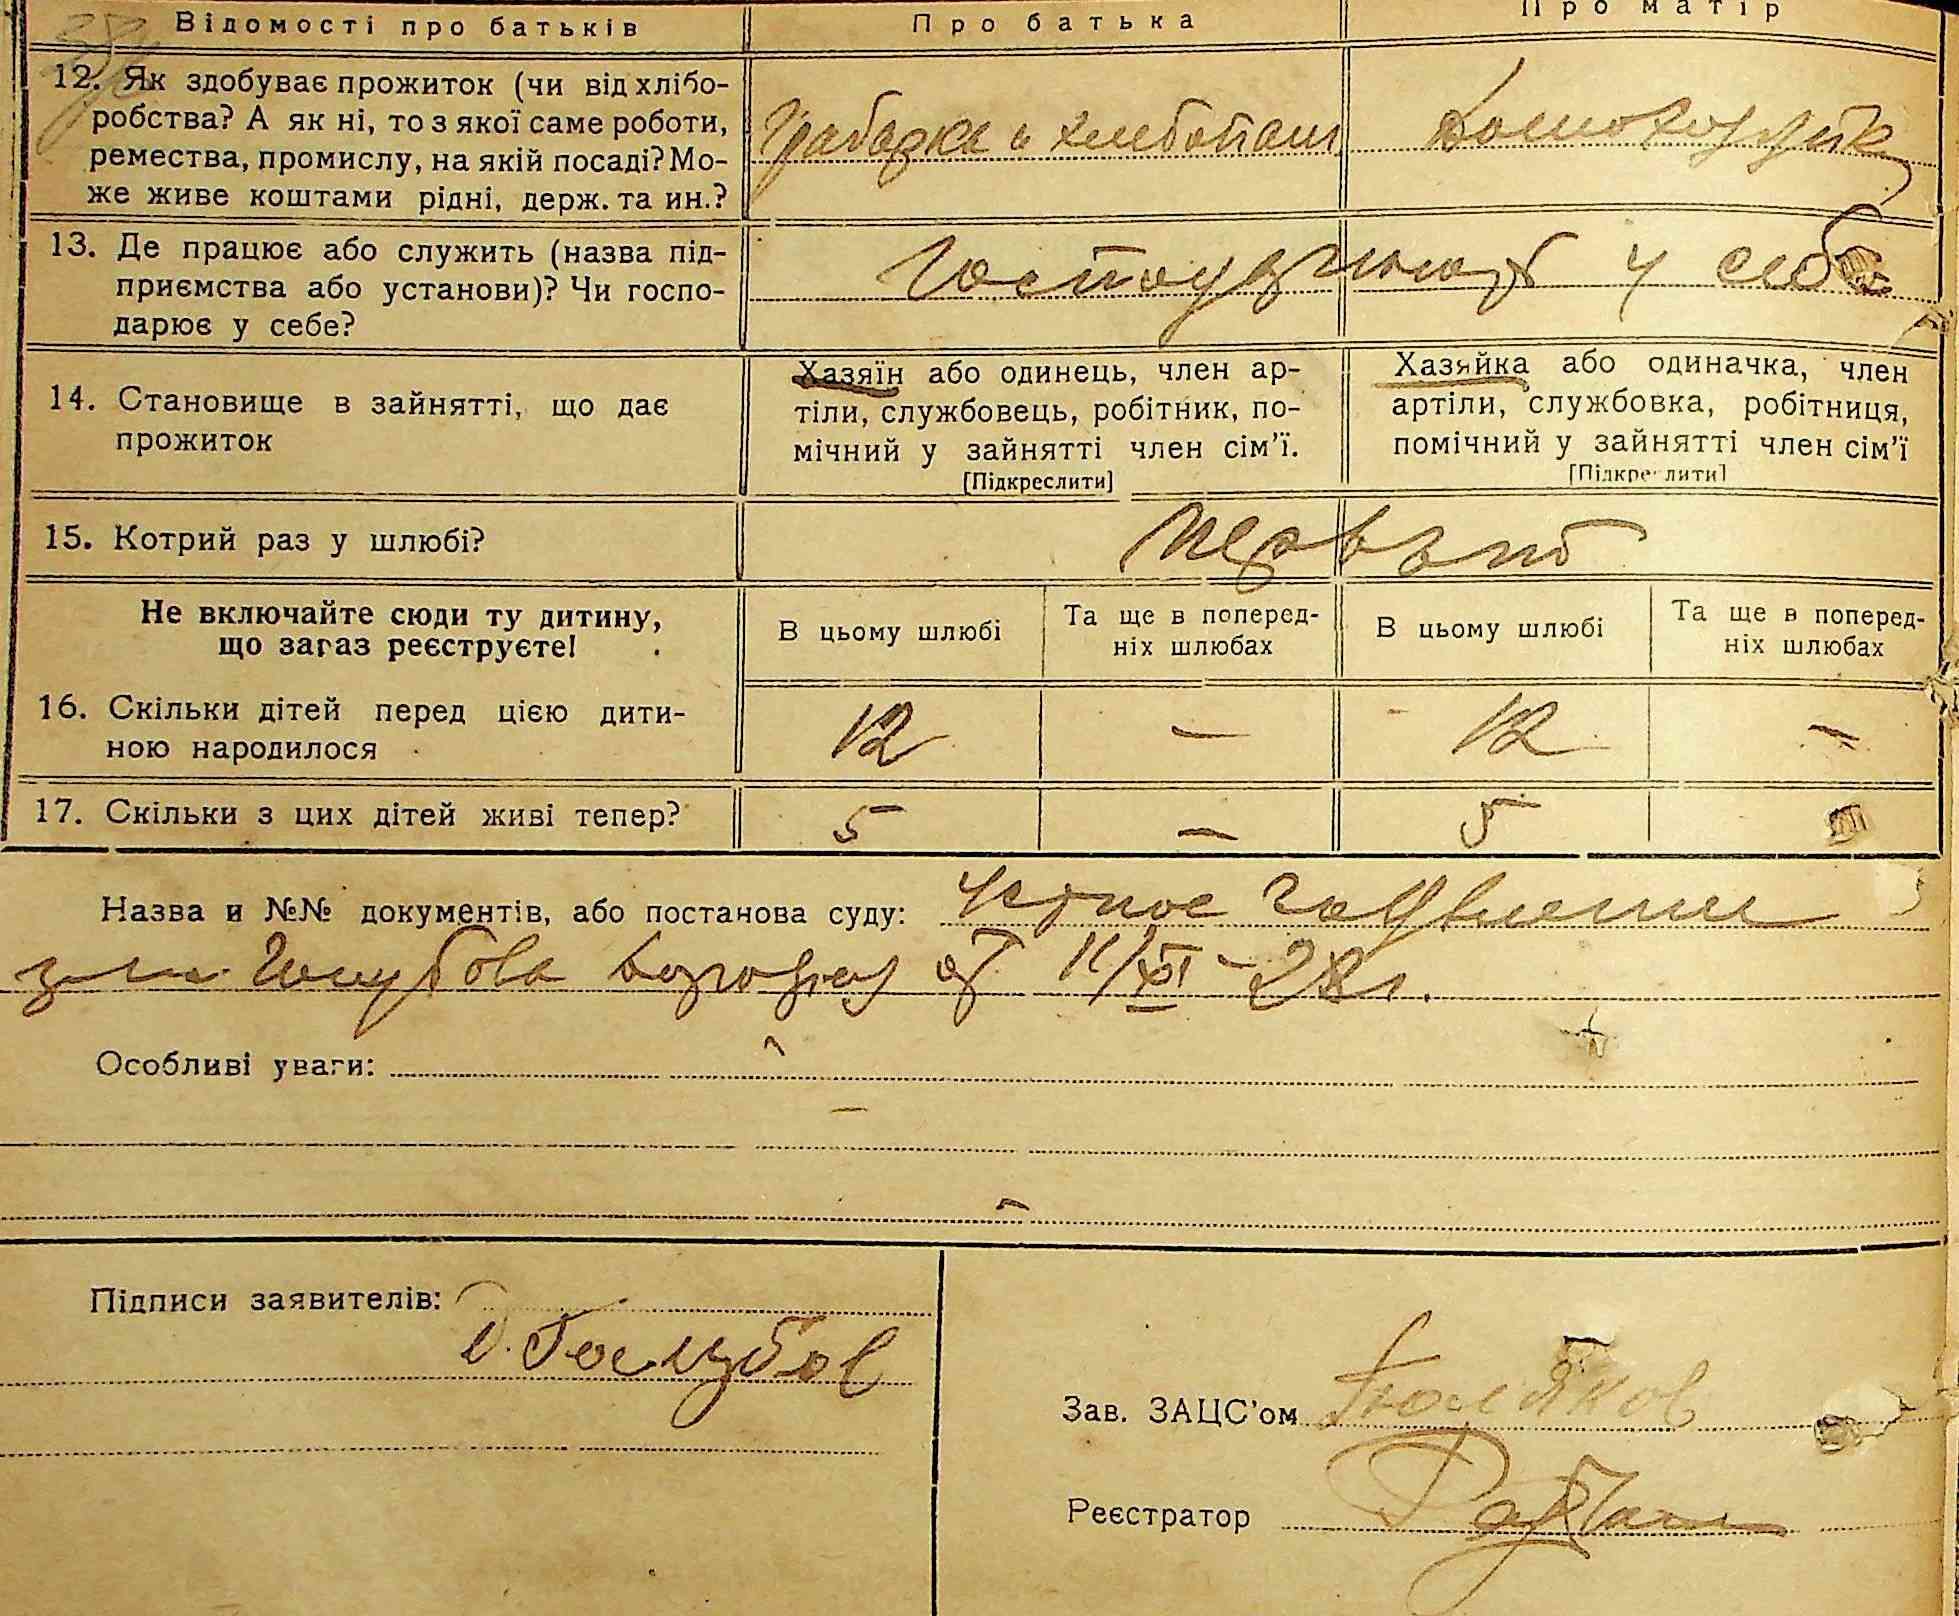 Відомості про батьків Про батька Про матір
12. Як здобуває прожиток (чи від хлібо-
робства? А як ні, то з якої саме роботи,
ремества, промислу, на якій посаді? Мо-
же живе коштами рідні, держ. та ин.?
13. Де працює або служить (назва під-
приємства або установи)? Чи госпо-
дарює у себе?
у себе
14. Становище в зайнятті, що дає
прожиток
Хазяїн або одинець, член ар-
тіли, службовець, робітник, по-
мічний у зайнятті член сім'ї.
[Підкреслити]
Хазяйка або одиначка, член
артіли, службовка, робітниця,
помічний у зайнятті член сім'ї
[Підкреслити]
15. Котрий раз у шлюбі?
Не включайте сюди ту дитину,
що зараз реєструєте!
В цьому шлюбі
Та ще в поперед-
ніх шлюбах
В цьому шлюбі
Та ще в поперед-
ніх шлюбах
16. Скільки дітей перед цією дити-
ною народилося
12 — 12 —
17. Скільки з цих дітей живі тепер?
5 — 5
Назва и №№ документів, або постанова суду:
Голубова от
Особливі уваги:
Підписи заявителів:
Голубов
Зав. ЗАЦС'ом
Реєстратор